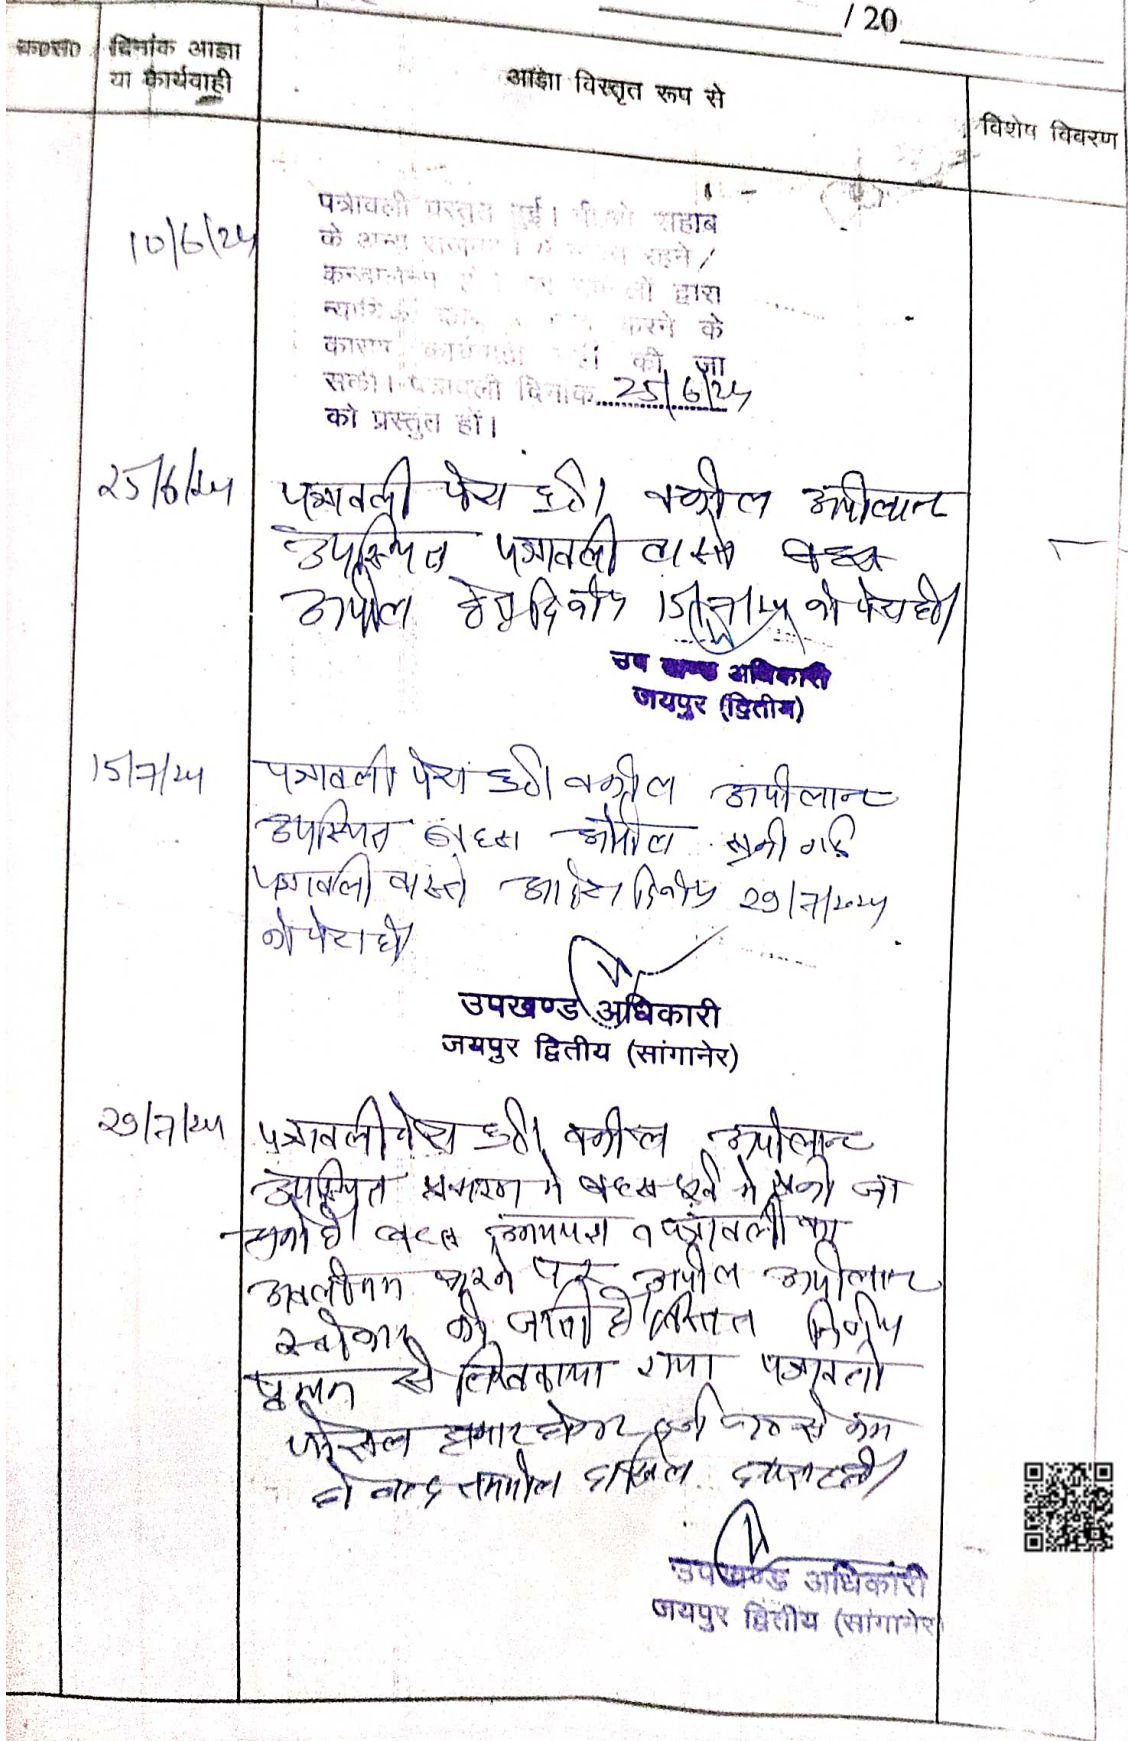 / 20
क्र०सं० दिनांक आज्ञा या कार्यवाही
आज्ञा विस्तृत रूप से
विशेष विवरण
10/6/24
पत्रावली प्रस्तुत हुई। पीओ साहब
के अन्य रहने/
द्वारा
न्यायिक करने के
कारण कार्यवाही नहीं की जा
सकी। पत्रावली दिनांक 25/6/24
को प्रस्तुत हों।
25/6/24
पत्रावली पेश हुई। वकील अपीलान्ट
उपस्थित पत्रावली वास्ते बहस
अपील हेतु दिनांक 15/7/24 को पेश हो।
उप खण्ड अधिकारी
जयपुर (द्वितीय)
15/7/24
पत्रावली पेश हुई। वकील अपीलान्ट
उपस्थित बहस अपील सुनी गई
पत्रावली वास्ते आदेश दिनांक 29/7/2024
को पेश हो।
उपखण्ड अधिकारी
जयपुर द्वितीय (सांगानेर)
29/7/24
पत्रावली पेश हुई। वकील अपीलान्ट
उपस्थित प्रकरण में बहस पूर्व में सुनी जा
चुकी है। बहस पत्रावली का
अवलोकन करने पर अपील अपीलान्ट
स्वीकार की जाती है। विस्तृत निर्णय
पृथक से लिखवाया गया पत्रावली
फैसल शुमार होकर दर्ज नम्बर से कम
हो बाद तकमील दाखिल दफ्तर हो।
उपखण्ड अधिकारी
जयपुर द्वितीय (सांगानेर)